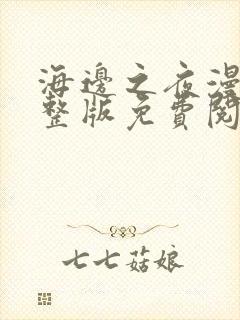 海邊之夜漫
整版免費閱
七七菇娘